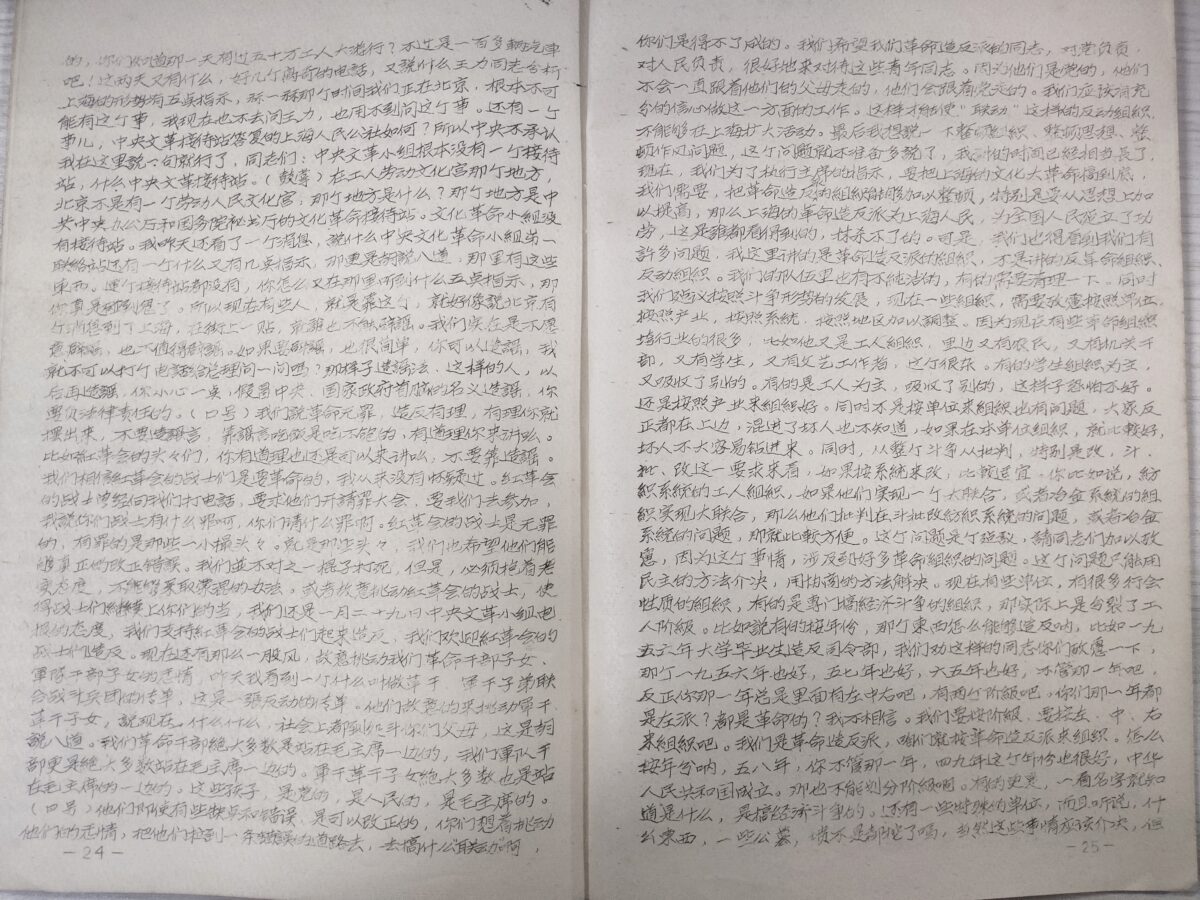 的，你们知道那一天有过五十万工人大游行？不过是一百多辆汽車
吧！这两天又有什么，好几个离奇的電話，又說什么王力同志分析
上海的形势有五点指示，那一段那个时间我们正在北京，根本不可
能有这个事，我现在也不去问王力，也用不到问这个事。还有一个
事儿，中央文革接待站答复的上海人民公社如何？所以中央不承认
我在这里說一句就行了，同志们：中央文革小组根本没有一个接待
站，什么中央文革接待站。（鼓掌）在工人劳动文化宫那个地方，
北京不是有一个劳动人民文化宫，那个地方是什么？那个地方是中
共中央办公厅和国务院秘书厅的文化革命接待站。文化革命小组没
有接待站。我昨天还看了一个消息，說什么中央文化革命小组第一
联络站还有一个什么又有几点指示，那更是胡說八道，那里有这些
東西。連个接待站都没有，你怎么又在那里听到什么五点指示，那
你真是碰到鬼了。所以现在有些人，就是靠这个，就好像說北京有
个消息到了上海，在街上一贴，靠謠也不能辟謠。我们实在是不愿
意辟謠，也不值得辟謠。如果要辟謠，也很简单，你可以造謠，我
就不可以打个电話给总理问一问吗？那样子造謠法，这样的人，以
后再造謠，你小心一点，假冒中央、国家政府首脑的名义造謠，你
要负法律責任的。（口号）我们說革命无罪，造反有理，有理你就
摆出来，不要造謠言，靠謠言吃饭是吃不饱的，有道理你来讲么。
比如紅革会的头头们，你有道理也还是可以来讲么，不要靠造謠。
我们相信紅革会的战士们是要革命的，我从来没有怀疑过。紅革会
的战士曾经向我们打电話，要求他们开請罪大会，要我们去参加，
我說你们战士有什么罪呵，你们請什么罪啊。紅革会的战士是无罪
的，有罪的是那些一小撮头々。就是那些头々，我们也希望他们能
够真正的改正错误。我们並不对之一棍子打死，但是，必须抱着老
实态度，不能够采取蒙混的办法，或者故意挑动紅革会的战士，使
得战士们继续上你们的当，我们还是一月二十九日中央文革小组电
报的态度，我们支持紅革会的战士们起来造反，我们欢迎紅革会的
战士们造反。现在还有那么一股风，故意挑动我们革命干部子女、
軍队干部子女的感情，昨天我看到一个什么叫做革干、軍干子弟联
合战斗兵团的传单，这是一張反动的传单。他们故意的来挑动軍干、
革干子女，說现在，什么什么，社会上都到处斗你们父母，这是胡
說八道。我们革命干部絕大多数是站在毛主席一边的，我们軍队干
部更是絕大多数站在毛主席一边的。軍干革干子女絕大多数也是站
在毛主席的一边的。这些孩子，是党的，是人民的，是毛主席的。
（口号）他们即使有些缺点和错误，是可以改正的，你们想着挑动
他们的感情，把他们拉到一条错误的道路去，去搞什么联动啊，
－24－
你们是得不了成的。我们希望我们革命造反派的同志，对党负責，
对人民负責，很好地来对待这些青年同志。因为他们是党的，他们
不会一直跟着他们的父母走的，他们会跟着党走的。我们应该有充
分的信心做这一方面的工作。这样才能使“联动”这样的反动组织
不能够在上海扩大活动。最后我想說一下整顿组织、整顿思想、整
顿作风问题，这个问题就不准备多說了，我讲的时间已经相当長了，
现在，我们为了执行主席的指示，要把上海的文化大革命搞到底，
我们需要，把革命造反派的组织能够加以整頓，特别是要从思想上加
以提高，那么上海的革命造反派为上海人民，为全国人民建立了功
劳，这是誰都看得到的，抹杀不了的。可是，我们也得看到我们有
許多问题，我这里讲的是革命造反派的组织，不是讲的反革命组织、
反动组织。我们的队伍里也有不純洁的，有的需要清理一下。同时
我们建议按照斗争形势的发展，现在一些组织，需要放意按照单位、
按照产业，按照系統、按照地区加以調整。因为现在有些革命组织
垮行业的很多，比如他又是工人组织，里边又有农民，又有机关干
部，又有学生，又有文艺工作者，这个很杂。有的学生组织为主，
又吸收了别的。有的是工人为主，吸收了别的，这样子恐怕不好。
还是按照产业来组织好。同时不是按单位来组织也有问题，大家反
正都在上边，混进了坏人也不知道，如果在本单位组织，就比较好，
坏人不大容易钻进来。同时，从整个斗争从批判，特别是改，斗、
批、改这一要求来看，如果按系統来改，比较适宜。你比如說，紡
織系統的工人组织，如果他们实现一个大联合，或者冶金系統的组
織实现大联合，那么他们批判在斗批改紡織系統的问题，或者冶金
系統的问题，那就比较方便。这个问题是个短教，請同志们加以放
意，因为这个事情，涉及到好多革命组织的问题。这个问题只能用
民主的方法介决，用协商的方法解决。现在有些单位，有很多行会
性质的组织，有的是专门搞经济斗争的组织，那实际上是分裂了工
人阶級。比如說有的按年份，那个東西怎么能够造反呐，比如一九
五六年大学毕业生造反司令部，我们劝这样的同志你们放意一下，
那个一九五六年也好，五七年也好，六五年也好，不管那一年吧，
反正你那一年总是里面有左中右吧，有两个阶級吧。你们那一年都
是左派？都是革命的？我不相信。我们要按阶級、要按左、中、右
来组织吧。我们是革命造反派，咱们就按革命造反派来组织。怎么
按年份呐，五八年，你不管那一年，四九年这个年份也很好，中华
人民共和国成立。那也不能划分阶級啊。有的更是，一看名字就知
道是什么，是搞经济斗争的。还有一些特殊的单位，而且听說，什
么東西，一些公墓，墳不是都挖了嗎，当然这些事情应该介决，但
－25－